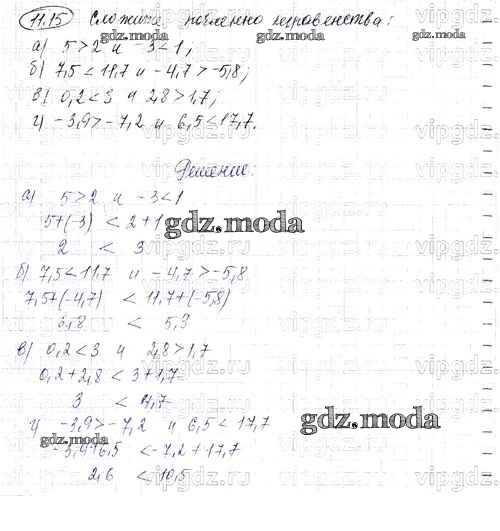 11.15 Сложите почленно неравенства:
а) 5>2 и -3<1;
б) 7,5<11,7 и -4,7>-5,8;
в) 0,2<3 и 2,8>1,7;
г) -3,9>-7,2 и 6,5<17,7.
Решение:
а) 5>2 и -3<1
5+(-3) < 2+1
gdz.moda
2 < 3
б) 7,5<11,7 и -4,7>-5,8
7,5+(-4,7) < 11,7+(-5,8)
3,8 < 5,3
в) 0,2<3 и 2,8>1,7
0,2+2,8 < 3+1,7
3 < 4,7
gdz.moda
г) -3,9>-7,2 и 6,5<17,7
gdz.moda
-3,9+6,5 <-7,2+17,7
2,6 < 10,5